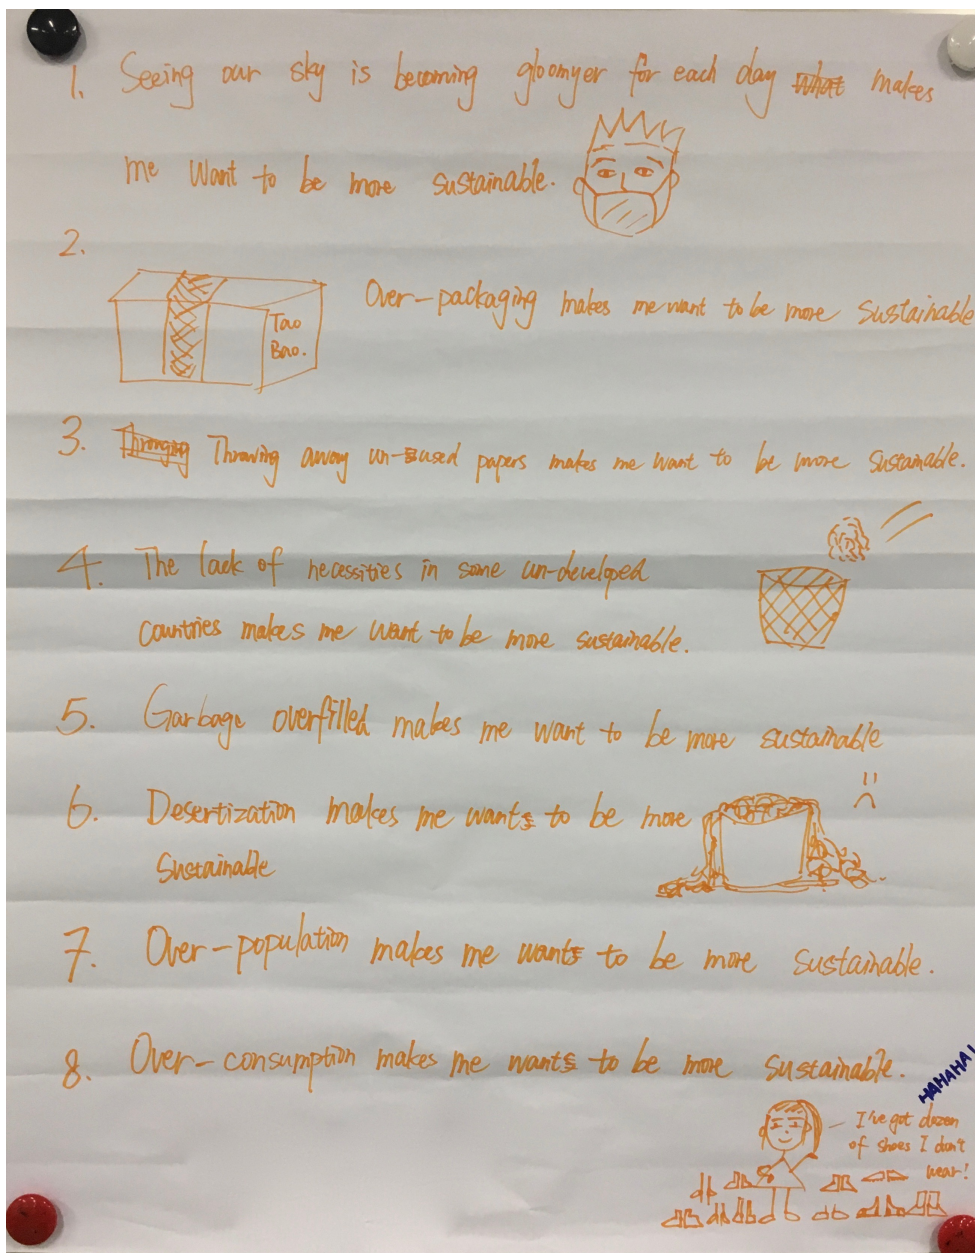 1. Seeing our sky is becoming gloomyer for each day what makes
me want to be more sustainable.
2.
Over-packaging makes me want to be more sustainable
Tao
Bao.
3. Thronging Throwing away un-used papers makes me want to be more sustainable.
4. The lack of necessities in some un-developed
countries makes me want to be more sustainable.
5. Garbage overfilled makes me want to be more sustainable
6. Desertization makes me wants to be more
Sustainable
7. Over-population makes me wants to be more sustainable.
8. Over-consumption makes me wants to be more sustainable.
HAHAHA!
I've got dozen
of shoes I don't
wear!